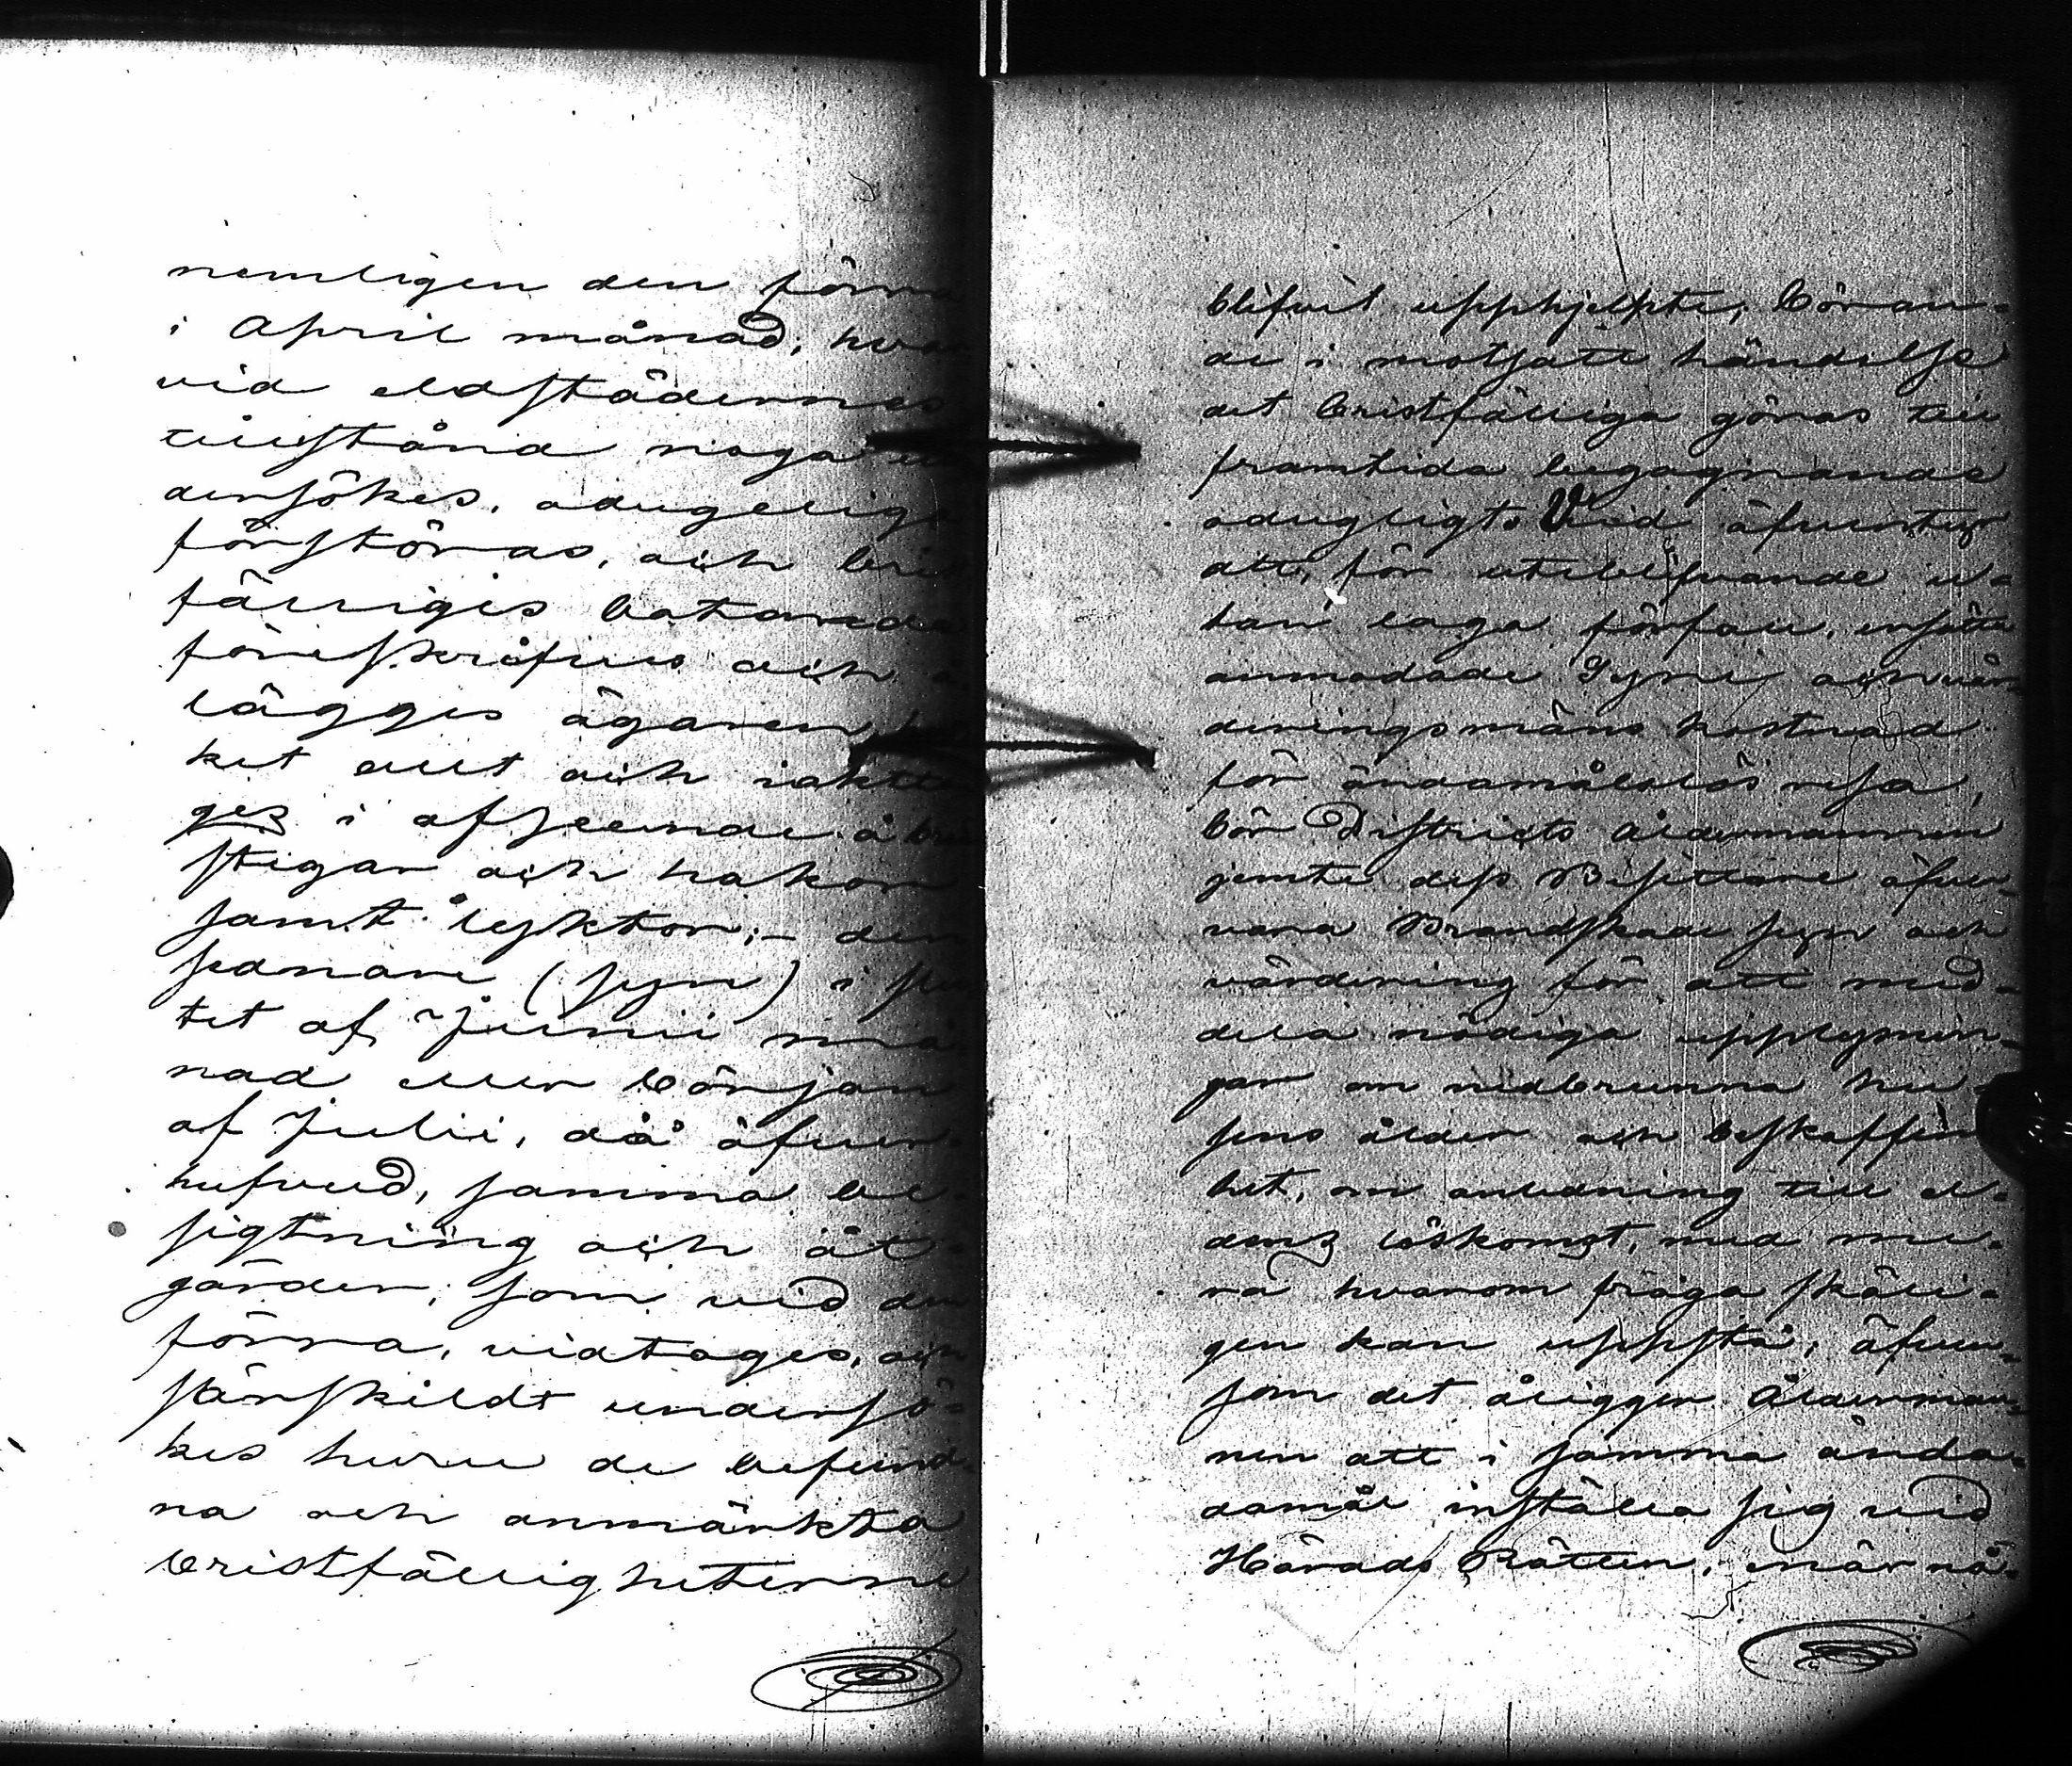 nemligen den förra
i April månad, hvar
vid eldstädernes
tillstånd noga un
dersökes, odugeliga
förstöras, och bris
fälliges botande
föreskrifves och å
lägges ägaren,
ket allt och iaktta
ges i afseende å brand
stigar och hakor
samt lyktor; – den
sednare (syn) i slu
tet af Junii må
nad eller början
af Julii, då äfven
hufvud, samma be-
sigtning och åt-
gärder, som vid den
förra, vidtages, och
särskildt undersö-
kes huru de befund-
na och anmärkta
bristfälligheterne
blifvit upphjelpte, böran-
de i motsatt händelse
det bristfälliga göras till
framtida begagnande
odugligt. Vid äfventyr
att, för uteblifvande u-
tan laga förfall, ersätta
anmodade Syne och vär-
deringsmäns kostnad
för ändamålslös resa,
bör Districts Åldermannen
jemte dess Bisittare öfver-
vara Brandskade syn och
värdering för att med-
dela nödiga upplysnin-
gar om nedbrunna hu-
sens ålder och beskaffen
het, om anledning till el-
dens löskomst, med me-
ra hvarom fråga skäli-
gen kan uppstå; äfven-
som det åligger Ålderman-
nen att i samma ända-
damål inställa sig vid
Härads Rätten, när nö-